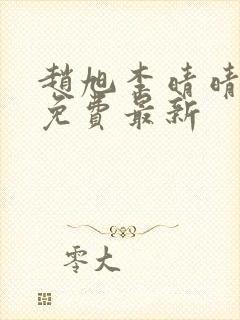 趙旭李晴晴
免費最新
零大